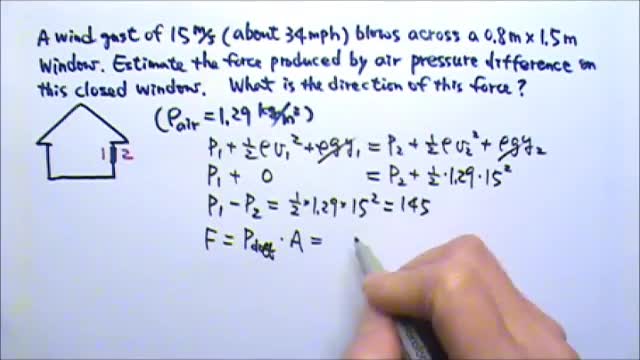 A wind gust of 15 m/s (about 34 mph) blows across a 0.8m × 1.5m
window. Estimate the force produced by air pressure difference on
this closed window. What is the direction of this force?
(ρair = 1.29 kg/m³)
1 2
P₁ + ½ρv₁² + ρgy₁ = P₂ + ½ρv₂² + ρgy₂
P₁ + 0 = P₂ + ½·1.29·15²
P₁ - P₂ = ½·1.29·15² = 145
F = Pdiff · A =